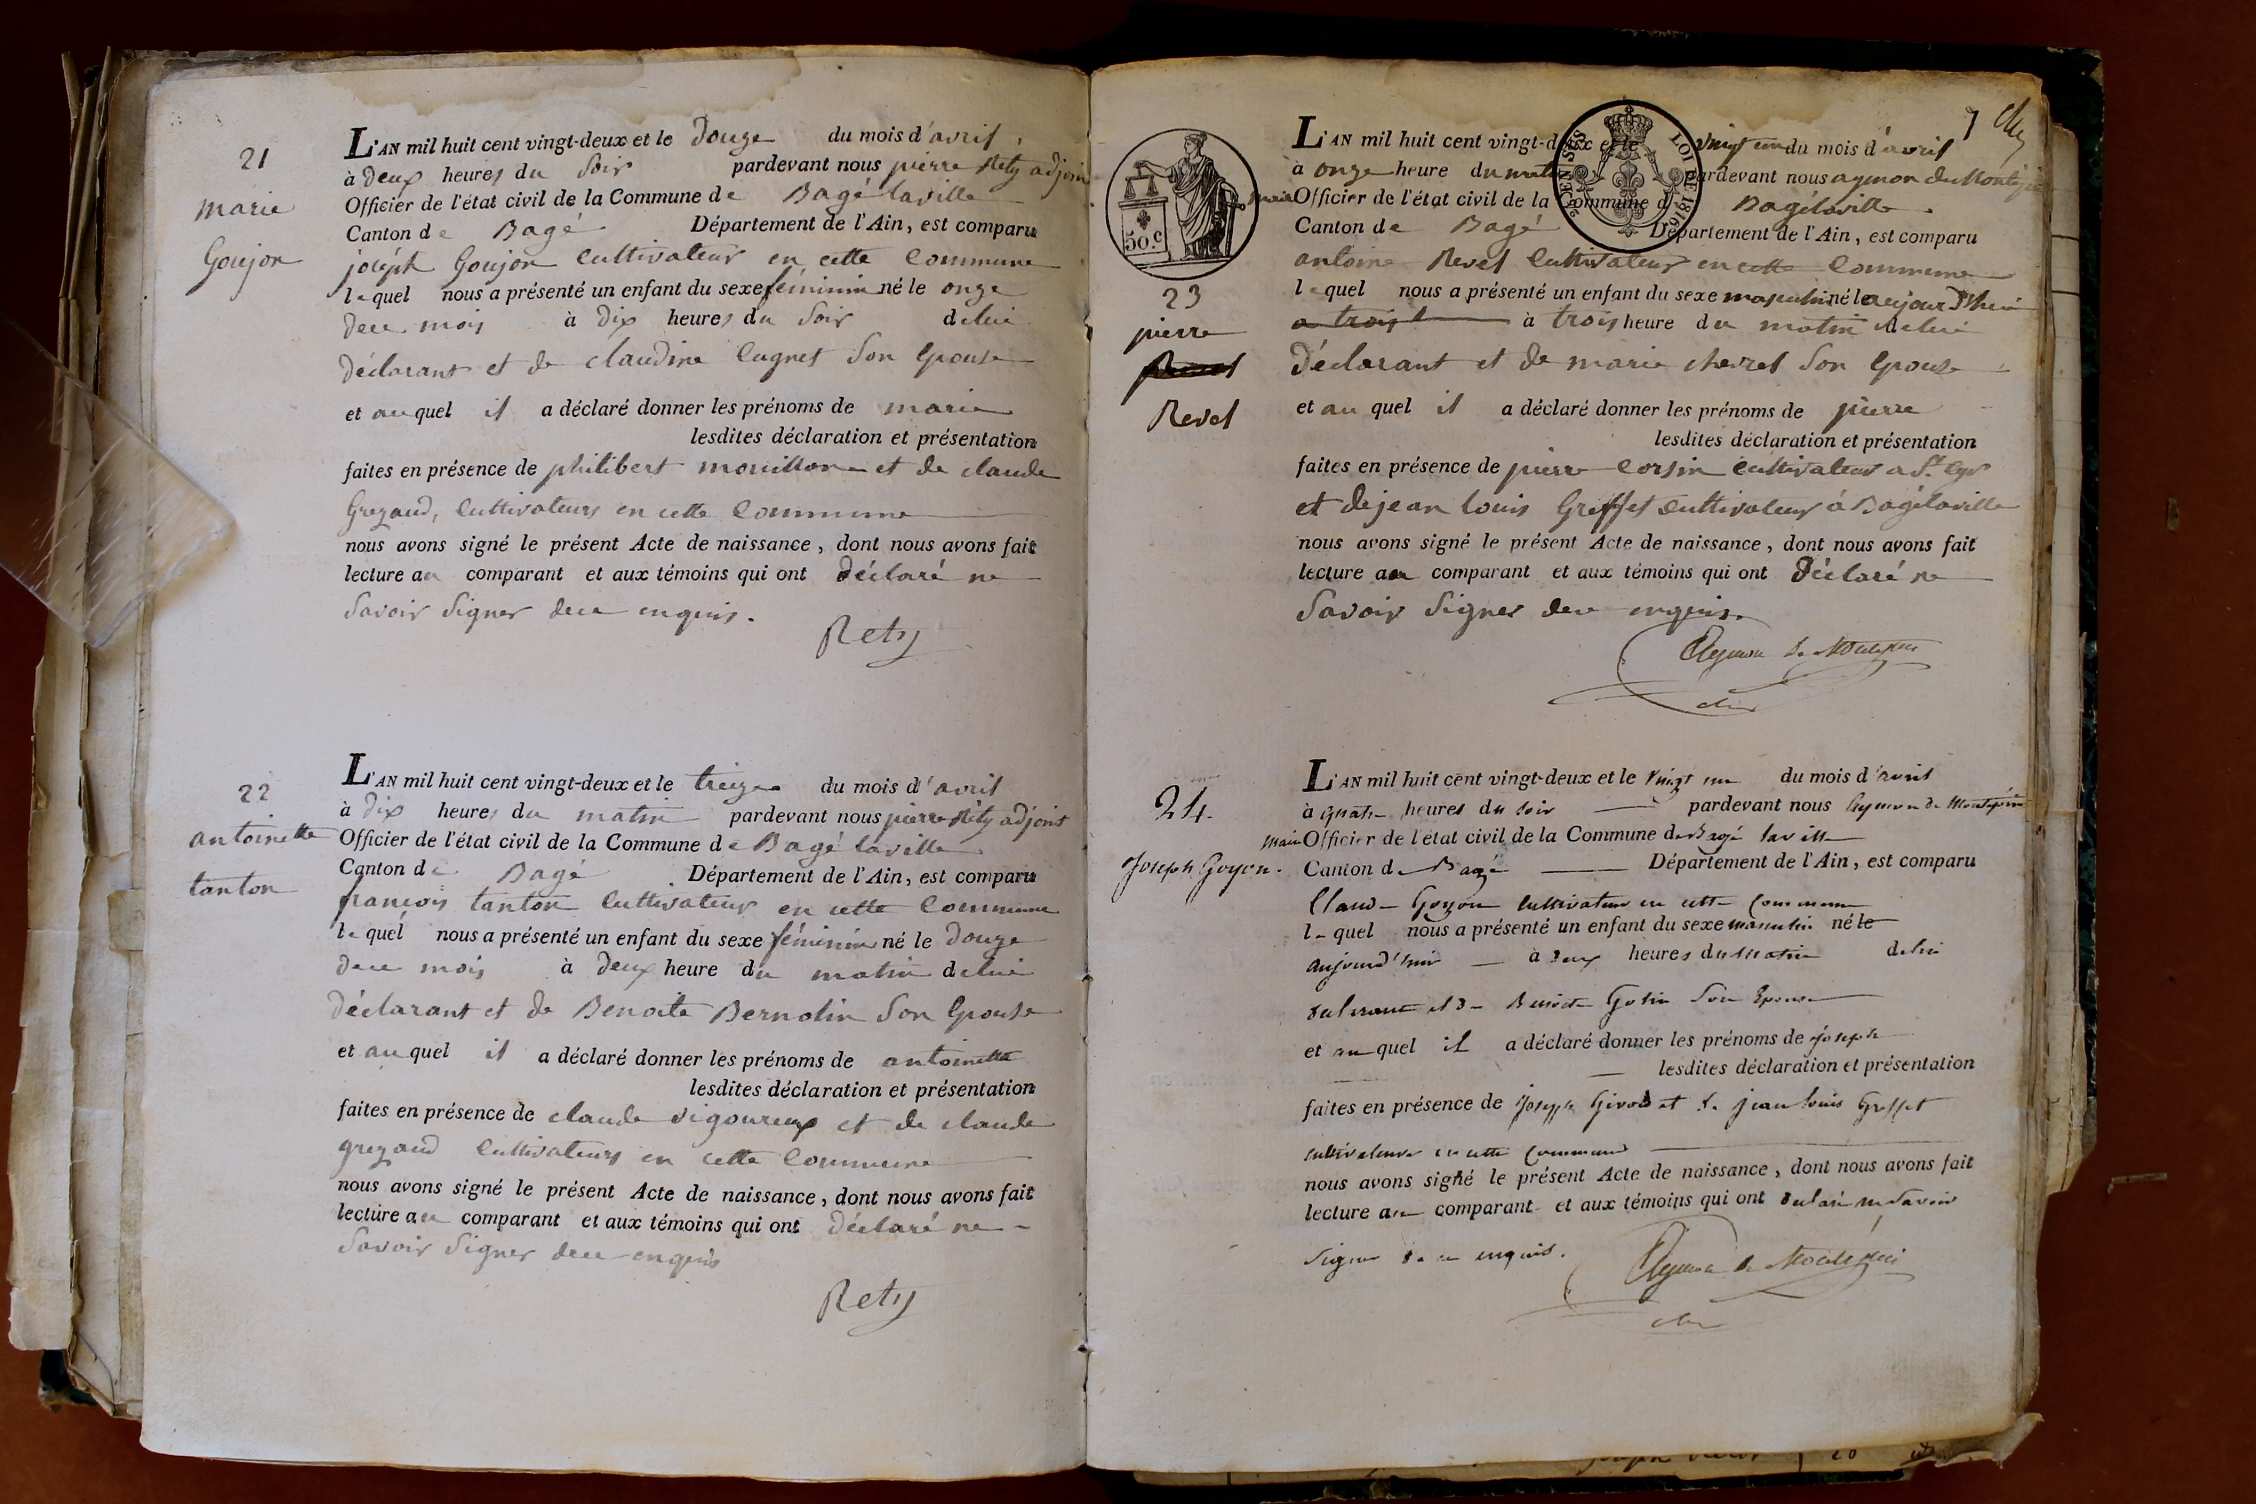 21
marie
Goujon
L'AN mil huit cent vingt-deux et le douze du mois d'avril
à deux heures du soir pardevant nous pierre Rety adjoint
Officier de l'état civil de la Commune de Bagé laville
Canton de Bagé Département de l'Ain, est comparu
joséph Goujon cultivateur en cette Commune
lequel nous a présenté un enfant du sexe féminin né le onze
dece mois à dix heures du soir de lui
déclarant et de claudine Cugnet son epouse
et auquel il a déclaré donner les prénoms de marie
lesdites déclaration et présentation
faites en présence de philibert mouillon et de claude
Grezaud, Cultivateurs en cette Commune
nous avons signé le présent Acte de naissance, dont nous avons fait
lecture au comparant et aux témoins qui ont déclaré ne
savoir signer dece enquis.
Rety
22
antoinette
tanton
L'AN mil huit cent vingt-deux et le treize du mois d'avril
à dix heures du matin pardevant nous pierre Réty adjoint
Officier de l'état civil de la Commune de Bagé laville
Canton de Bagé Département de l'Ain, est comparu
francois tanton Cultivateur en cette Commune
lequel nous a présenté un enfant du sexe féminin né le douze
dece mois à deux heure du matin de lui
déclarant et de Benoite Bernolin son Epouse
et auquel il a déclaré donner les prénoms de antoinette
lesdites déclaration et présentation
faites en présence de claude vigoureux et de claude
grezaud Cultivateurs en cette Commune
nous avons signé le présent Acte de naissance, dont nous avons fait
lecture au comparant et aux témoins qui ont déclaré ne
savoir signer dece enquis
Rety
7
50.c
CEN SES
LOI DE 1816
23
pierre
Revel
L'AN mil huit cent vingt-deux et le vingt un du mois d'avril
à onze heure du matin pardevant nous aymon de Montépin
maire Officier de l'état civil de la Commune de Bagélaville
Canton de Bagé Département de l'Ain, est comparu
antoine Revel Cultivateur en cette Commune
lequel nous a présenté un enfant du sexe masculin né le aujourd'hui
a trois à trois heure du matin de lui
Déclarant et de marie chevrel son epouse
et au quel il a déclaré donner les prénoms de pierre
lesdites déclaration et présentation
faites en présence de pierre Corsin Cultivateur a St Cyr
et de jean louis Greffet Cultivateur à Bagélaville
nous avons signé le présent Acte de naissance, dont nous avons fait
lecture au comparant et aux témoins qui ont Déclaré ne
Savoir signer dece enquis.
Aymon de Montépin
24
Joseph Goyon.
L'AN mil huit cent vingt-deux et le vingt un du mois d'avril
à quatre heures du soir pardevant nous Aymon de Montépin
maire Officier de l'état civil de la Commune de Bagé laville
Canton de Bagé Département de l'Ain, est comparu
Claude Goyon cultivateur en cette Commune
lequel nous a présenté un enfant du sexe masculin né le
aujourd'hui à deux heures du matin de lui
declarant et de Benoite Gosin son Epouse
et au quel il a déclaré donner les prénoms de joseph
lesdites déclaration et présentation
faites en présence de Joseph Givord et de jean louis Greffet
cultivateurs en cette Commune
nous avons signé le présent Acte de naissance, dont nous avons fait
lecture au comparant et aux témoins qui ont declaré ne savoir
signer de ce enquis.
Aymon de Montépin